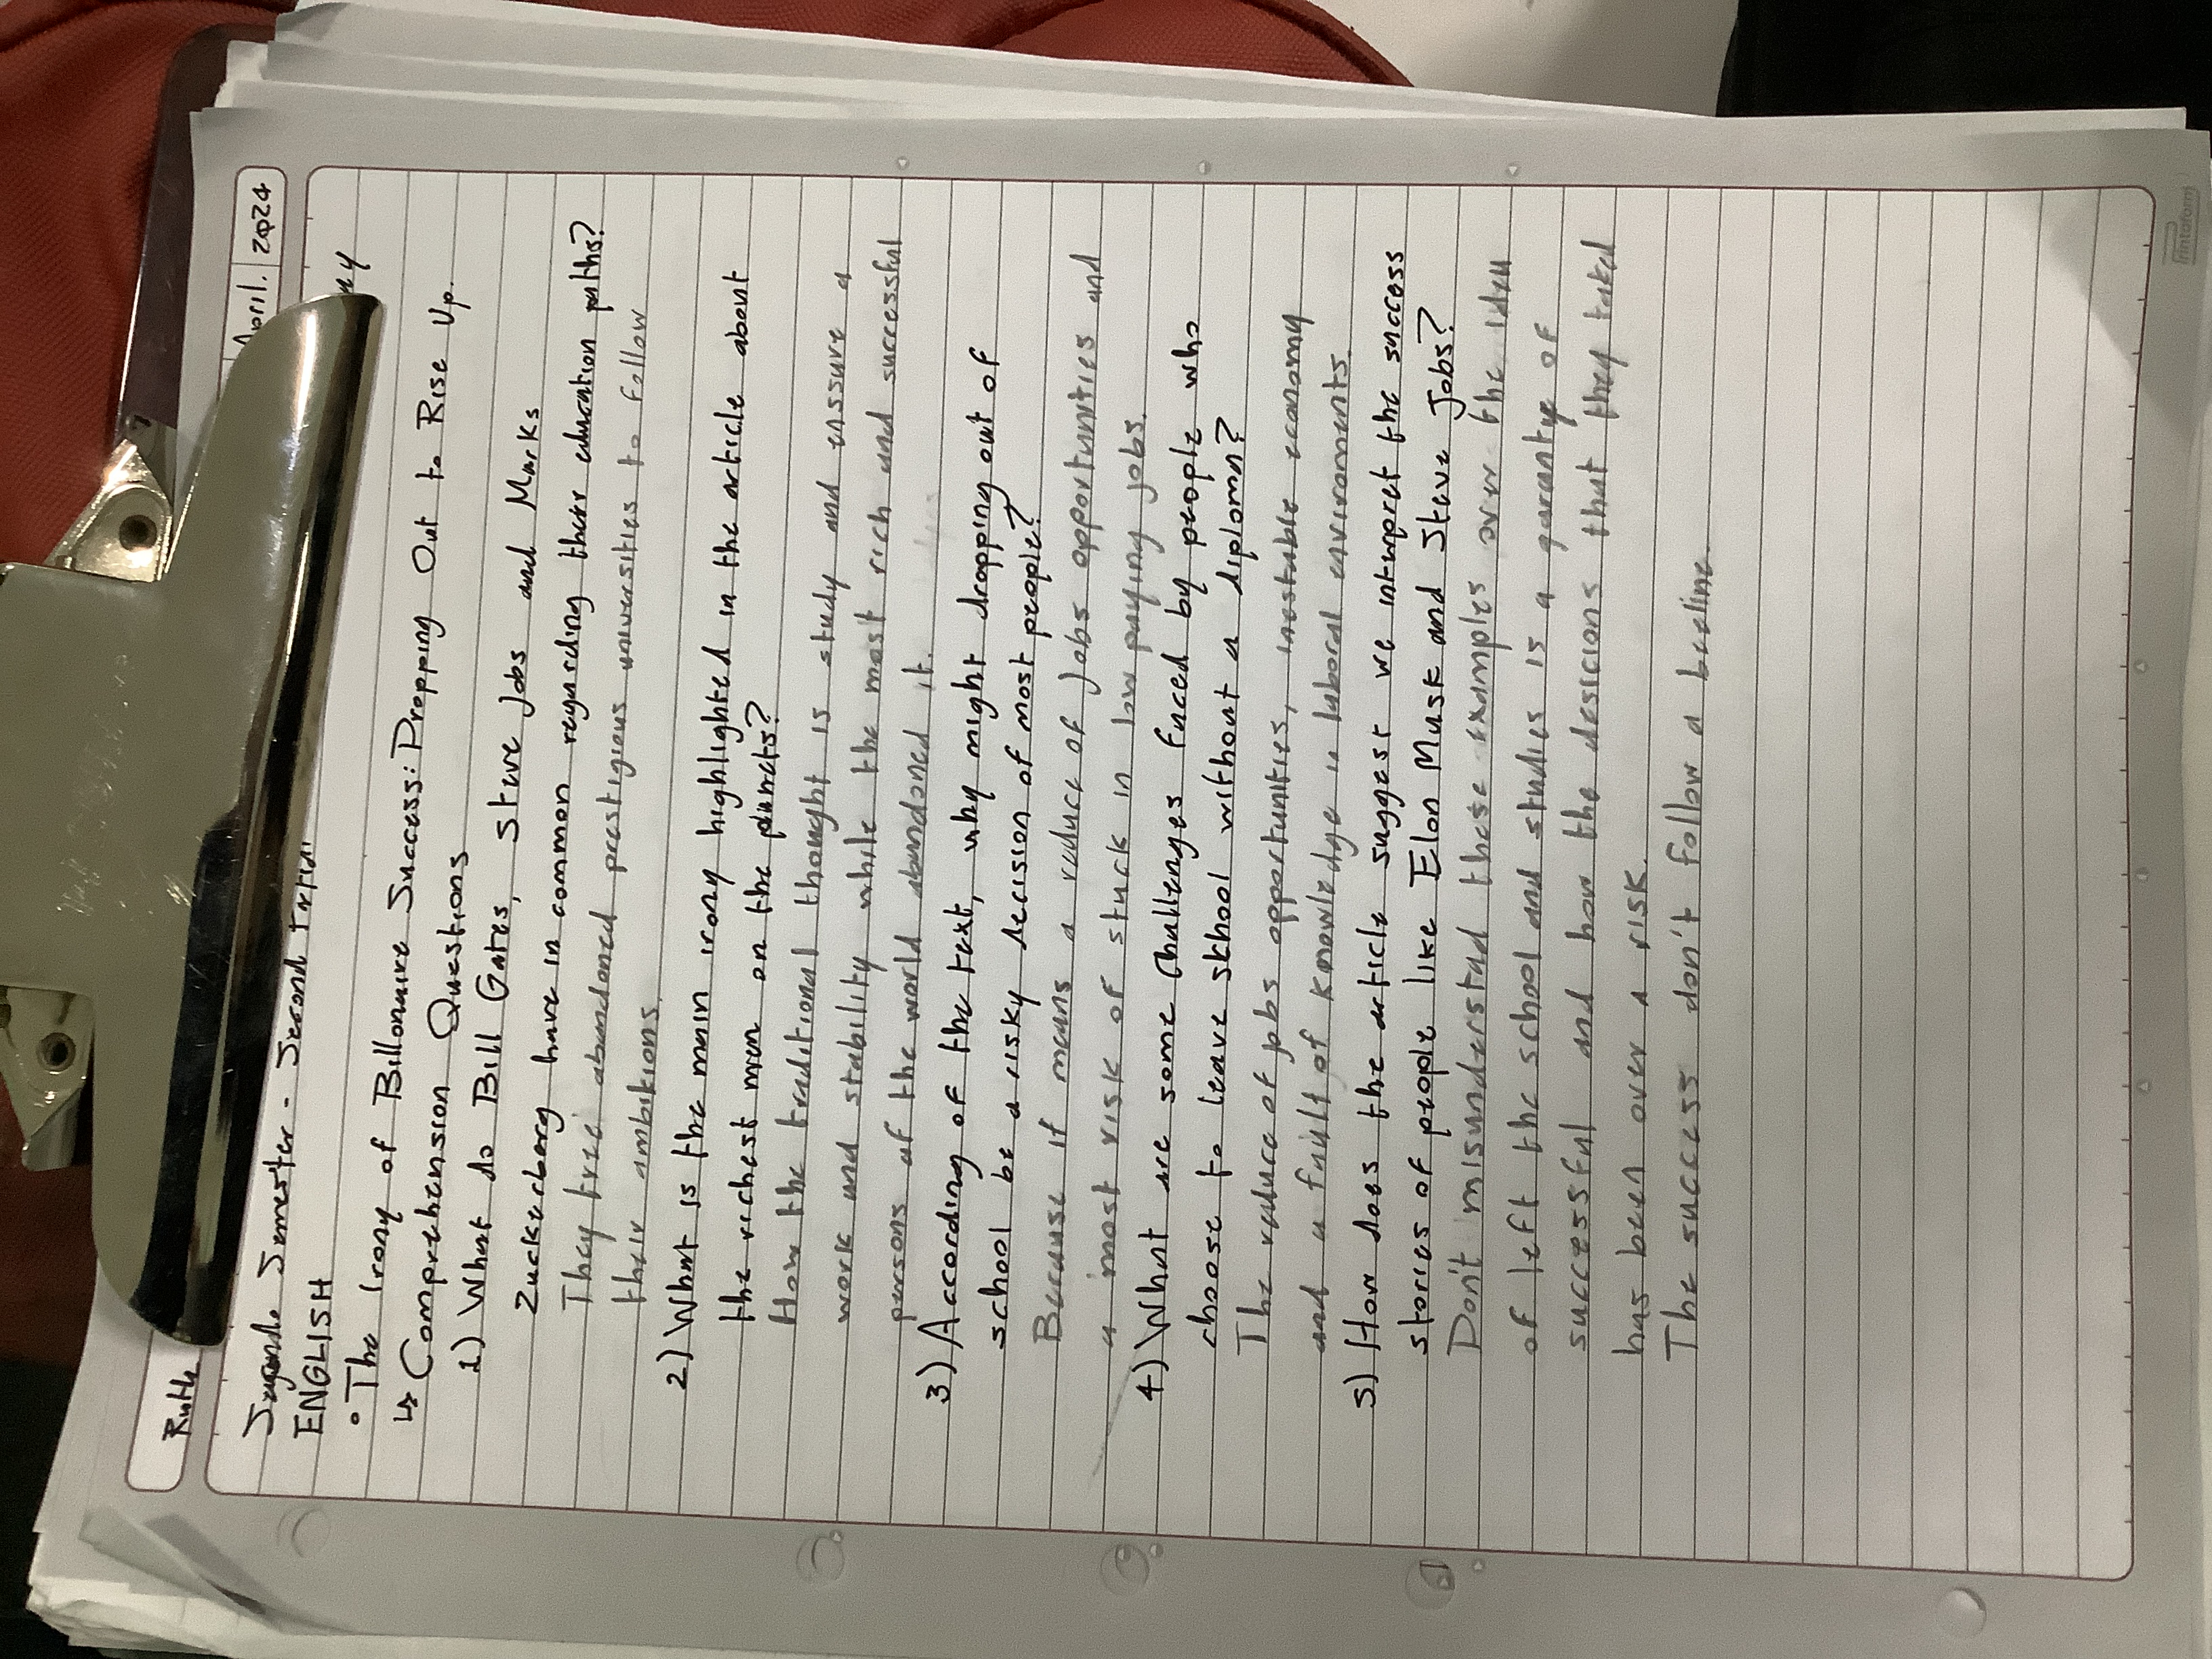 Ruth
April. 2024
Semester - Second
ENGLISH
• The Irony of Billonaire Success: Dropping Out to Rise Up.
↳ Comprehension Questions
1) What do Bill Gates, Steve Jobs and Marks
Zuckerberg have in common regarding their education paths?
They abandoned prestigious universities to follow
their ambitions.
2) What is the main irony highlighted in the article about
the richest men on the planets?
How the traditional thought is study and assure a
work and stability while the most rich and successful
persons of the world abandoned it.
3) According of the text, why might dropping out of
school be a risky decision of most people?
Because if means a reduce of jobs opportunities and
a most risk of stuck in low paying jobs.
4) What are some challenges faced by people who
choose to leave school without a diploma?
The reduce of jobs opportunities, inestable economy
and a fault of knowledge in laboral enviroments.
5) How does the article suggest we interpret the success
stories of people like Elon Musk and Steve Jobs?
Don't misunderstad these examples over the idea
of left the school and studies is a garanty of
successful and how the desicions that they taked
has been over a risk.
The success don't follow a baseline.
Printaform